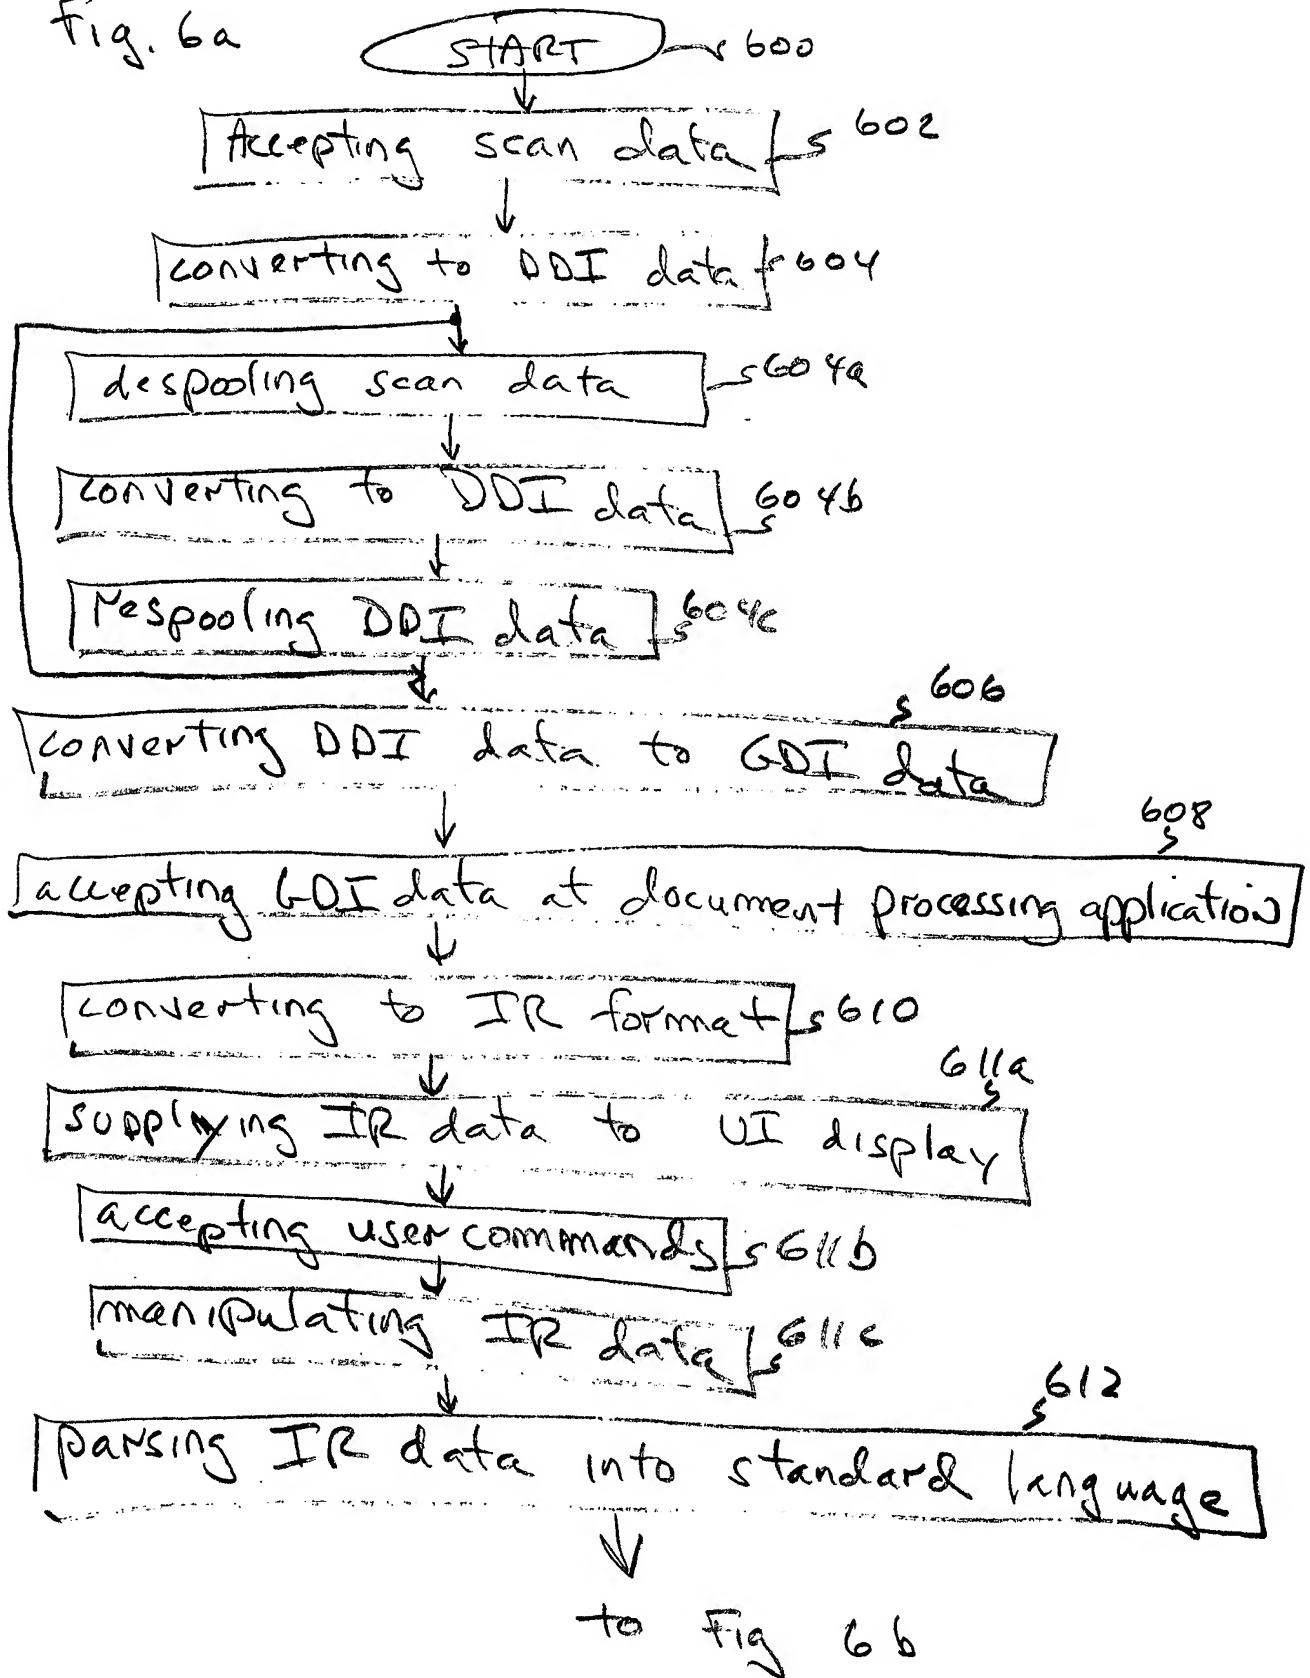 Fig. 6a
START 600
Accepting scan data 602
converting to DDI data 604
despooling scan data 604a
converting to DDI data 604b
respooling DDI data 604c
606
converting DDI data to GDI data
608
accepting GDI data at document processing application
converting to IR format 610
611a
supplying IR data to UI display
accepting user commands 611b
manipulating IR data 611c
612
parsing IR data into standard language
to Fig 6b